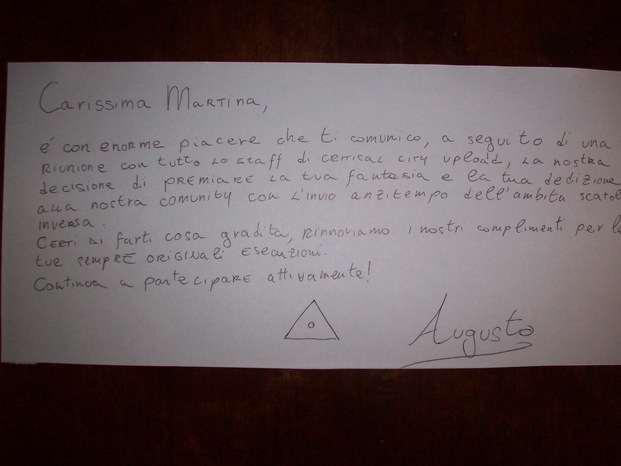 Carissima Martina,
é con enorme piacere che ti comunico, a seguito di una
riunione con tutto lo staff di cerrisal city upload, la nostra
decisione di premiare la tua fantasia e la tua dedizione
alla nostra comunity con l'invio anzitempo dell'ambita scatol
inversa.
Certi di farti cosa gradita, rinnoviamo i nostri complimenti per l
tue sempre originali esecuzioni.
Continua a partecipare attivamente!
Augusto